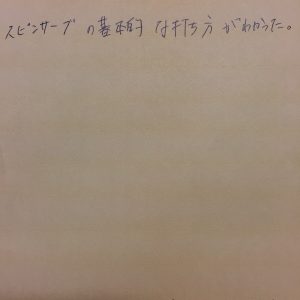 スピンサーブの基本的な打ち方がわかった。